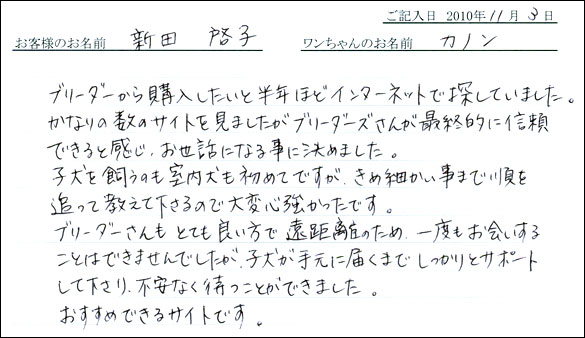 ご記入日 2010年11月3日
お客様のお名前 新田 啓子 ワンちゃんのお名前 カノン
ブリーダーから購入したいと半年ほどインターネットで探していました。
かなりの数のサイトを見ましたがブリーダーズさんが最終的に信頼
できると感じ、お世話になる事に決めました。
子犬を飼うのも室内犬も初めてですが、きめ細かい事まで順を
追って教えて下さるので大変心強かったです。
ブリーダーさんもとても良い方で遠距離のため、一度もお会いする
ことはできませんでしたが、子犬が手元に届くまでしっかりとサポート
して下さり、不安なく待つことができました。
おすすめできるサイトです。